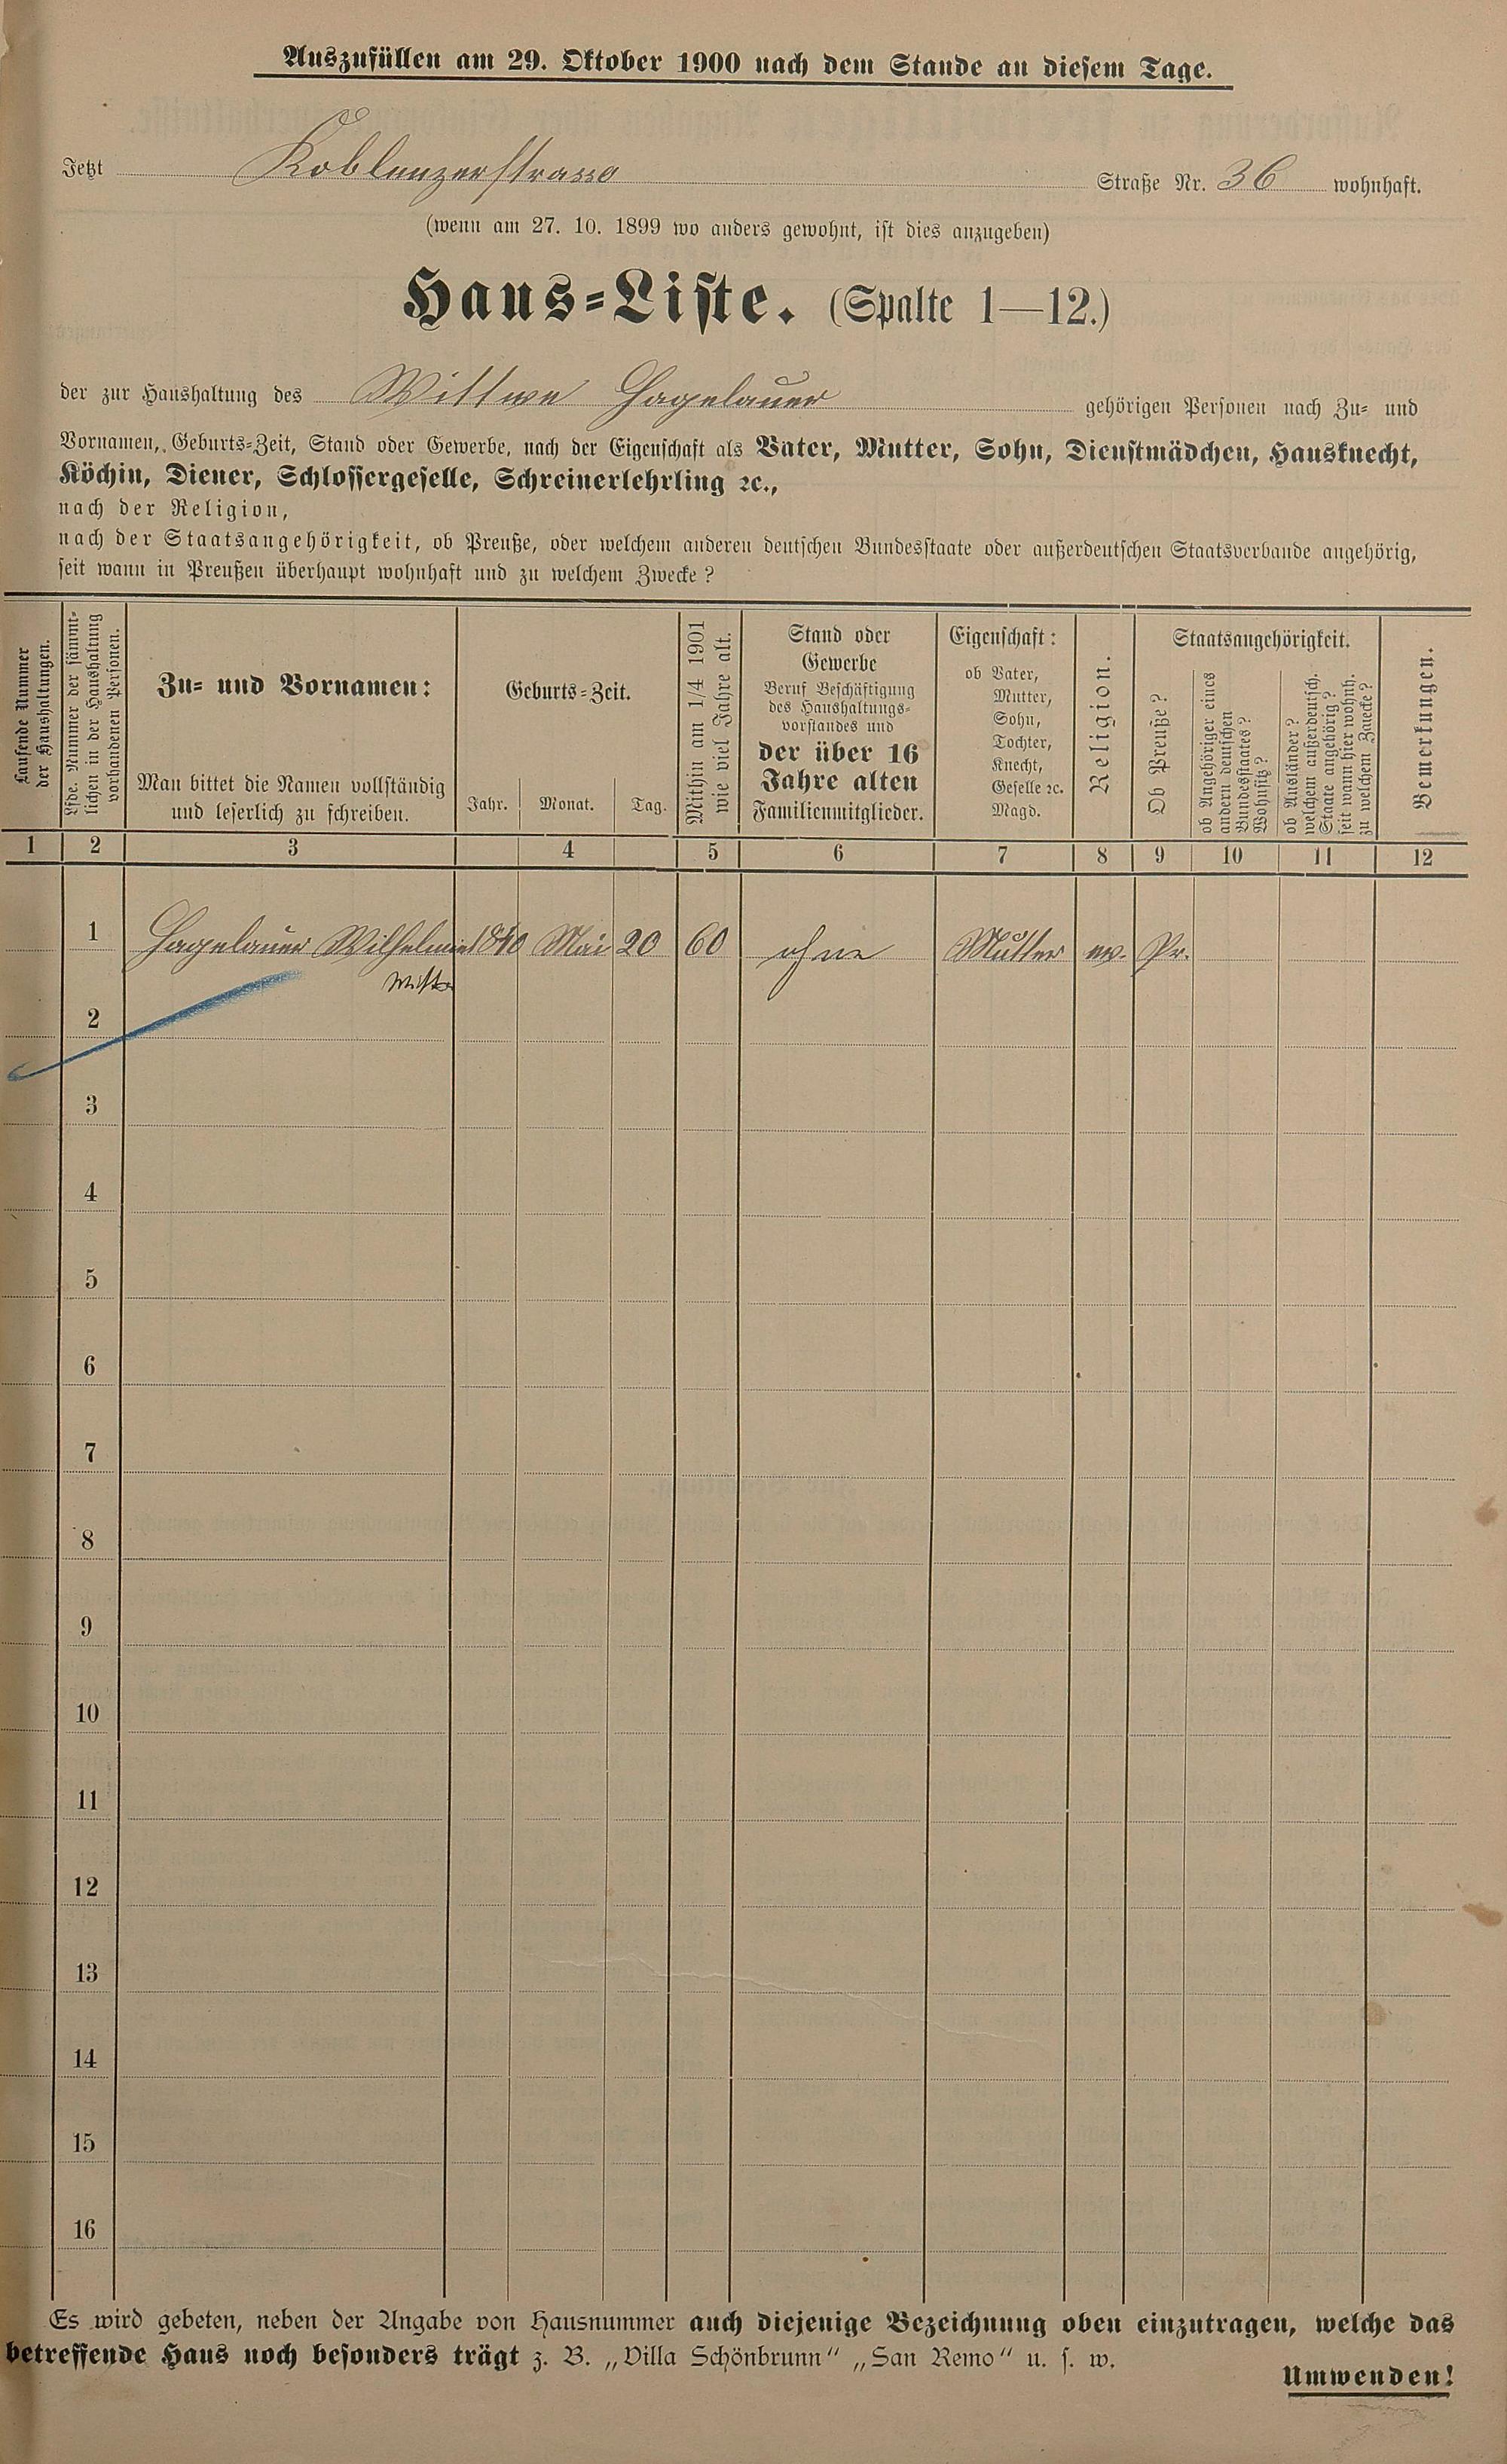 Auszufüllen am 29. Oktober 1900 nach dem Stande an diesem Tage.
Jetzt Koblenzerstrasse Straße Nr. 36 wohnhaft.
(wenn am 27. 10. 1899 wo anders gewohnt, ist dies anzugeben)
Haus-Liste. (Spalte 1—12.)
der zur Haushaltung des Wittwe Hagelauer gehörigen Personen nach Zu- und
Vornamen, Geburts-Zeit, Stand oder Gewerbe, nach der Eigenschaft als Vater, Mutter, Sohn, Dienstmädchen, Hausknecht,
Köchin, Diener, Schlossergeselle, Schreinerlehrling ꝛc.,
nach der Religion,
nach der Staatsangehörigkeit, ob Preuße, oder welchem anderen deutschen Bundesstaate oder außerdeutschen Staatsverbande angehörig,
seit wann in Preußen überhaupt wohnhaft und zu welchem Zwecke?
Laufende Nummer
der Haushaltungen.
Lfde. Nummer der sämmt-
lichen in der Haushaltung
vorhandenen Personen.
Zu- und Vornamen:
Man bittet die Namen vollständig
und leserlich zu schreiben.
Geburts-Zeit.
Jahr. Monat. Tag.
Mithin am 1/4 1901
wie viel Jahre alt.
Stand oder
Gewerbe
Beruf Beschäftigung
des Haushaltungs-
vorstandes und
der über 16
Jahre alten
Familienmitglieder.
Eigenschaft:
ob Vater,
Mutter,
Sohn,
Tochter,
Knecht,
Geselle ꝛc.
Magd.
Religion.
Staatsangehörigkeit.
Ob Preuße?
ob Angehöriger eines
andern deutschen
Bundesstaates?
Wohnsitz?
ob Ausländer?
welchem außerdeutsch.
Staate angehörig?
seit wann hier wohnh.
zu welchem Zwecke?
Bemerkungen.
1 2 3 4 5 6 7 8 9 10 11 12
1 Hagelauer Wilhelmine 1840 Mai 20 60 ohne Mutter ev. Pr.
Wittw
2
3
4
5
6
7
8
9
10
11
12
13
14
15
16
Es wird gebeten, neben der Angabe von Hausnummer auch diejenige Bezeichnung oben einzutragen, welche das
betreffende Haus noch besonders trägt z. B. „Villa Schönbrunn“ „San Remo“ u. s. w.
Umwenden!